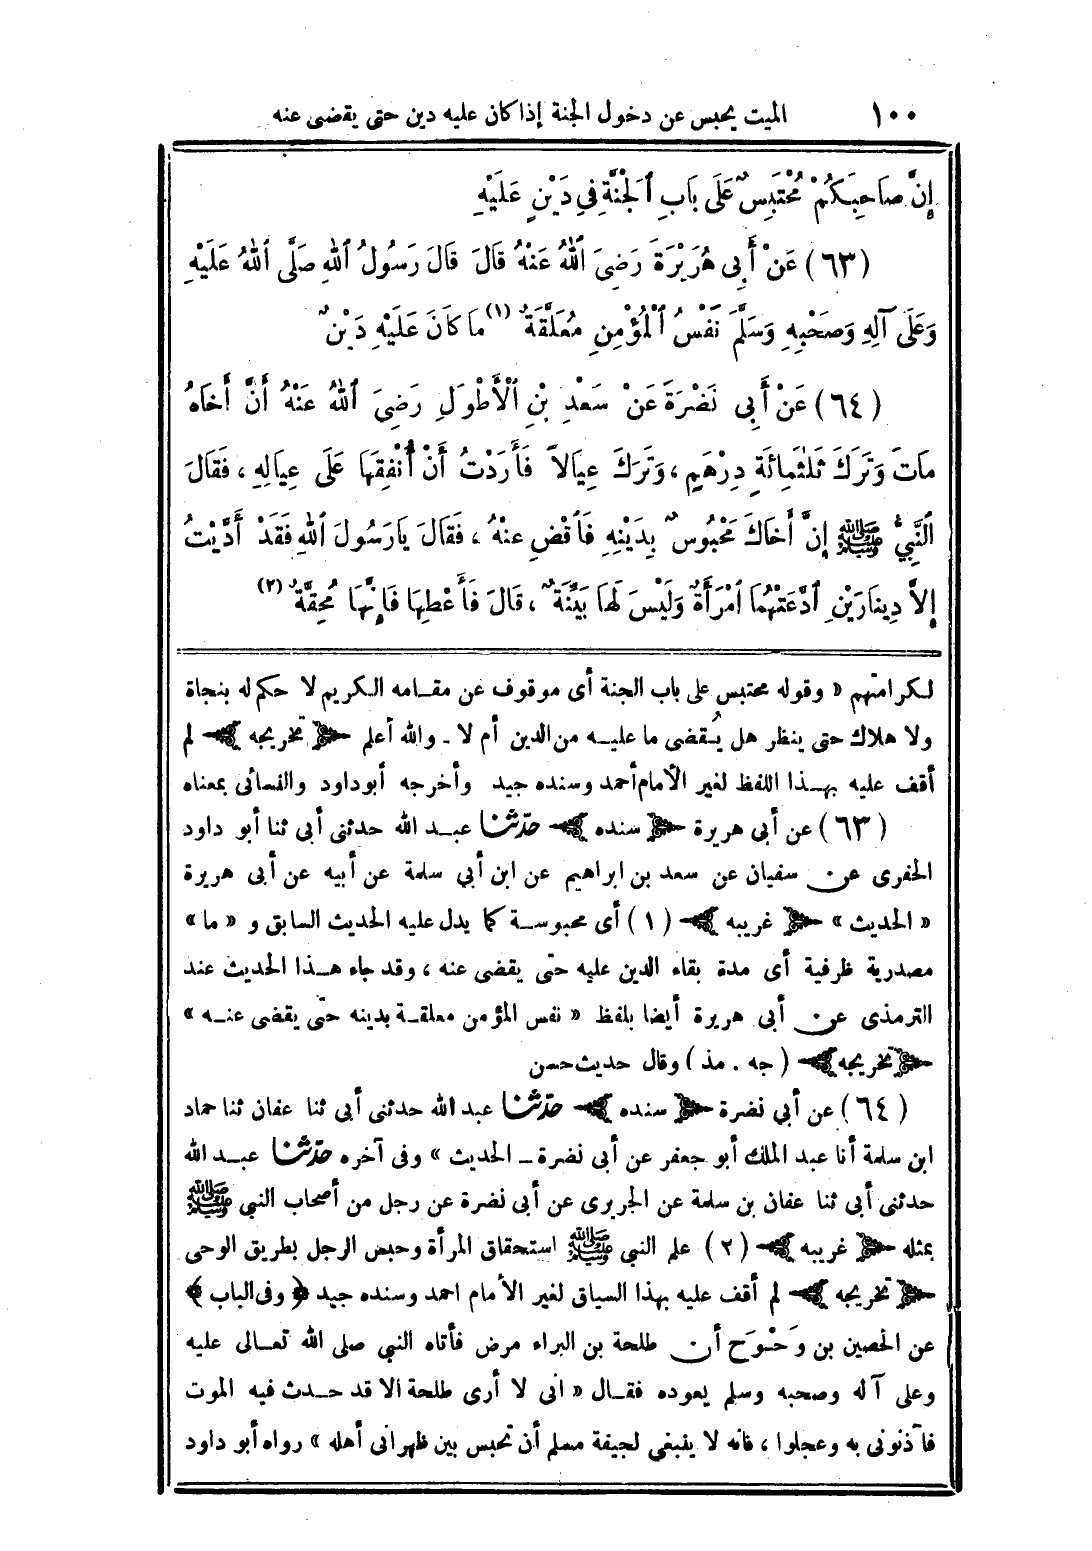 ١٠٠ الميت يحبس عن دخول الجنة إذا كان عليه دين حتى يقضى عنه
إِنَّ صَاحِبَكُمْ مُحْتَبِسٌ عَلَى بَابِ ٱلْجَنَّةِ فِي دَيْنٍ عَلَيْهِ
(٦٣) عَنْ أَبِى هُرَيْرَةَ رَضِىَ ٱللهُ عَنْهُ قَالَ قَالَ رَسُولُ ٱللهِ صَلَّى ٱللهُ عَلَيْهِ
وَعَلَى آلِهِ وَصَحْبِهِ وَسَلَّمَ نَفْسُ ٱلْمُؤْمِنِ مُعَلَّقَةٌ (١) مَا كَانَ عَلَيْهِ دَيْنٌ
(٦٤) عَنْ أَبِى نَضْرَةَ عَنْ سَعْدِ بْنِ ٱلْأَطْوَلِ رَضِىَ ٱللهُ عَنْهُ أَنَّ أَخَاهُ
مَاتَ وَتَرَكَ ثَلَثَمِائَةِ دِرْهَمٍ ، وَتَرَكَ عِيَالاً فَأَرَدْتُ أَنْ أُنْفِقَهَا عَلَى عِيَالِهِ ، فَقَالَ
ٱلنَّبِيُّ ﷺ إِنَّ أَخَاكَ مَحْبُوسٌ بِدَيْنِهِ فَٱقْضِ عَنْهُ ، فَقَالَ يَا رَسُولَ ٱللهِ فَقَدْ أَدَّيْتُ
إِلاَّ دِينَارَيْنِ ٱدَّعَتْهُمَا ٱمْرَأَةٌ وَلَيْسَ لَهَا بَيِّنَةٌ ، قَالَ فَأَعْطِهَا فَإِنَّهَا مُحِقَّةٌ (٢)
لكرامتهم « وقوله محتبس على باب الجنة أى موقوف عن مقامه الكريم لا حكم له بنجاة
ولا هلاك حتى ينظر هل يُقضى ما عليه من الدين أم لا ـ والله أعلم ﴿ تخريجه ﴾ لم
أقف عليه بهذا اللفظ لغير الأمام أحمد وسنده جيد وأخرجه أبوداود والنسائى بمعناه
(٦٣) عن أبى هريرة ﴿ سنده ﴾ حدّثنا عبد الله حدثنى أبى ثنا أبو داود
الحفرى عن سفيان عن سعد بن ابراهيم عن ابن أبي سلمة عن أبيه عن أبى هريرة
« الحديث » ﴿ غريبه ﴾ (١) أى محبوسة كما يدل عليه الحديث السابق و « ما »
مصدرية ظرفية أى مدة بقاء الدين عليه حتى يقضى عنه ، وقد جاء هذا الحديث عند
الترمذى عن أبى هريرة أيضا بلفظ « نفس المؤمن معلقة بدينه حتّى يقضى عنه »
﴿ تخريجه ﴾ (جه . مذ) وقال حديث حسن
(٦٤) عن أبي نضرة ﴿ سنده ﴾ حدّثنا عبد الله حدثنى أبى ثنا عفان ثنا حماد
ابن سلمة أنا عبد الملك أبو جعفر عن أبى نضرة ـ الحديث » وفى آخره حدّثنا عبد الله
حدثنى أبى ثنا عفان بن سلمة عن الجريرى عن أبى نضرة عن رجل من أصحاب النبى ﷺ
بمثله ﴿ غريبه ﴾ (٢) علم النبى ﷺ استحقاق المرأة وحبس الرجل بطريق الوحى
﴿ تخريجه ﴾ لم أقف عليه بهذا السياق لغير الأمام احمد وسنده جيد ﴿ وفى الباب ﴾
عن الحصين بن وَحْوَح أن طلحة بن البراء مرض فأتاه النبى صلى الله تعالى عليه
وعلى آله وصحبه وسلم يعوده فقال « انى لا أرى طلحة الا قد حدث فيه الموت
فآذنونى به وعجلوا ، فانه لا ينبغى لجيفة مسلم أن تحبس بين ظهرانى أهله » رواه أبو داود